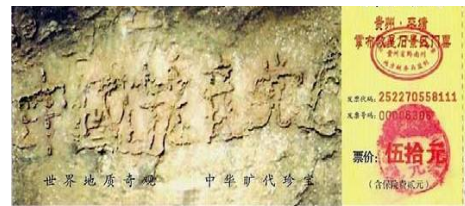 中国共产党
世界地质奇观 中华旷代珍宝
贵州·平塘
掌布藏字石景区门票
发票代码: 252270558111
发票号码: 00006396
票价: 伍拾元
(含保险费贰元)